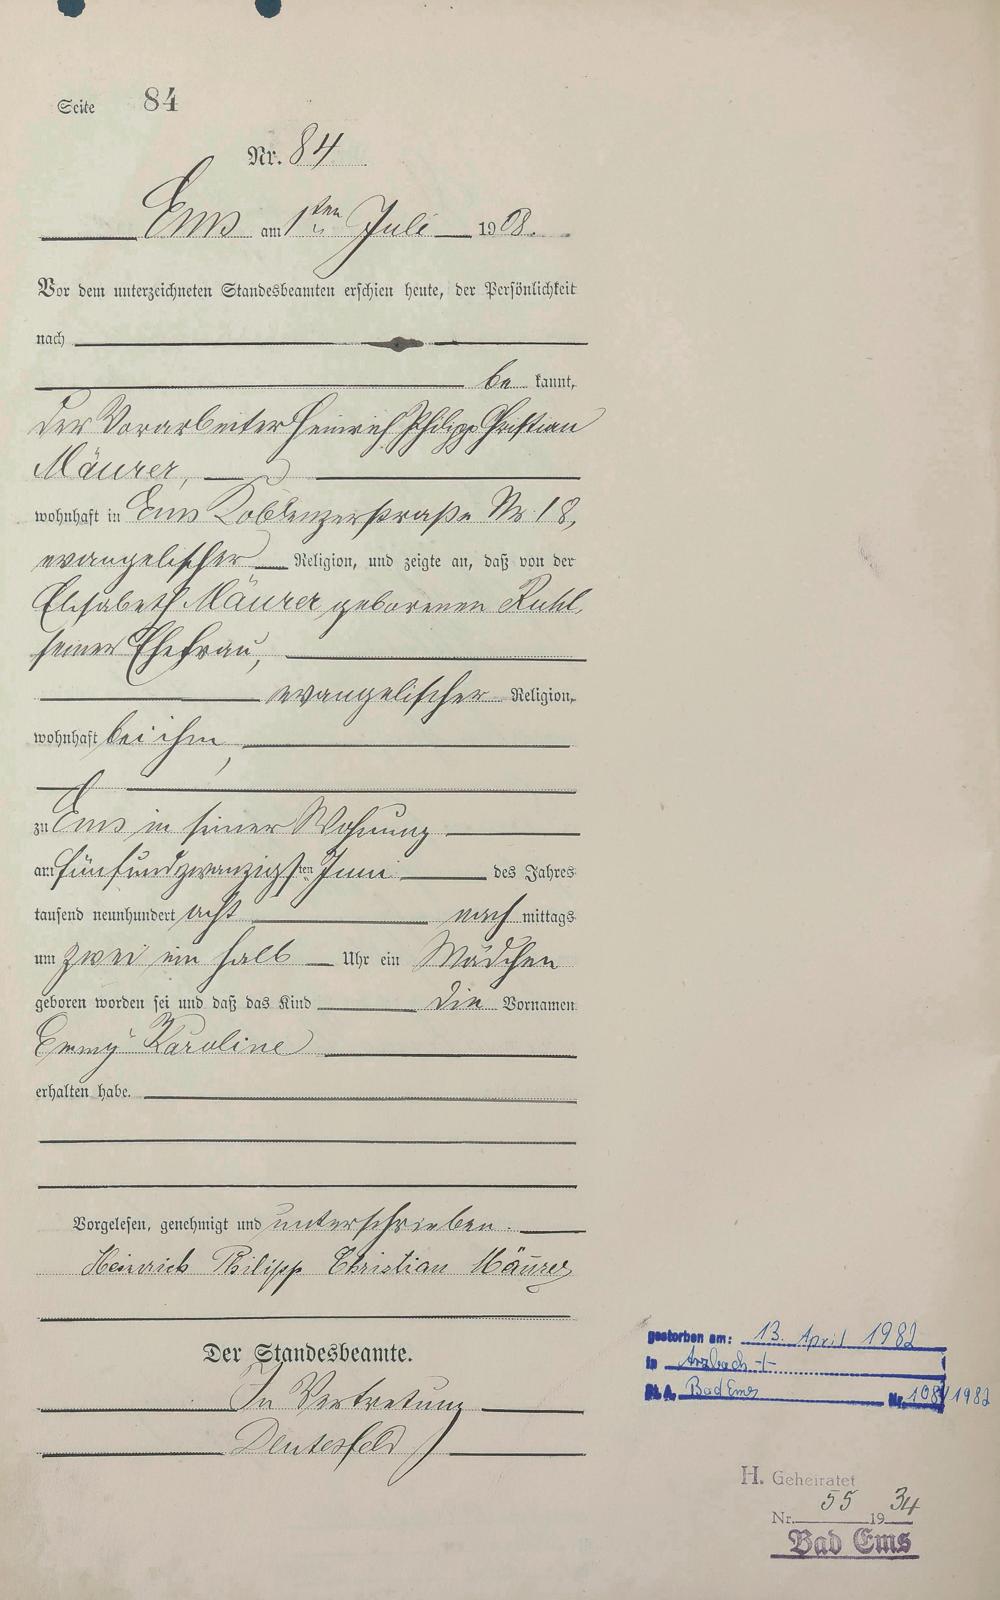 Seite 84
Nr. 84
Ems am 1ten Juli 1908.
Vor dem unterzeichneten Standesbeamten erschien heute, der Persönlichkeit
nach
be kannt,
der Vorarbeiter Heinrich Philipp Christian
Mäurer,
wohnhaft in Ems Koblenzerstraße Nr. 18,
evangelischer Religion, und zeigte an, daß von der
Elisabeth Mäurer geborenen Ruhl,
seiner Ehefrau,
evangelischer Religion,
wohnhaft bei ihm,
zu Ems in seiner Wohnung
am fünfundzwanzigsten Juni des Jahres
tausend neunhundert acht nach mittags
um zwei ein halb Uhr ein Mädchen
geboren worden sei und daß das Kind die Vornamen
Emmy Karoline
erhalten habe.
Vorgelesen, genehmigt und unterschrieben.
Heinrich Philipp Christian Mäurer
Der Standesbeamte.
In Vertretung
gestorben am: 13. April 1982
in Arzbach
St. A. Bad Ems Nr. 108/1982
H. Geheiratet
Nr. 55 1934
Bad Ems